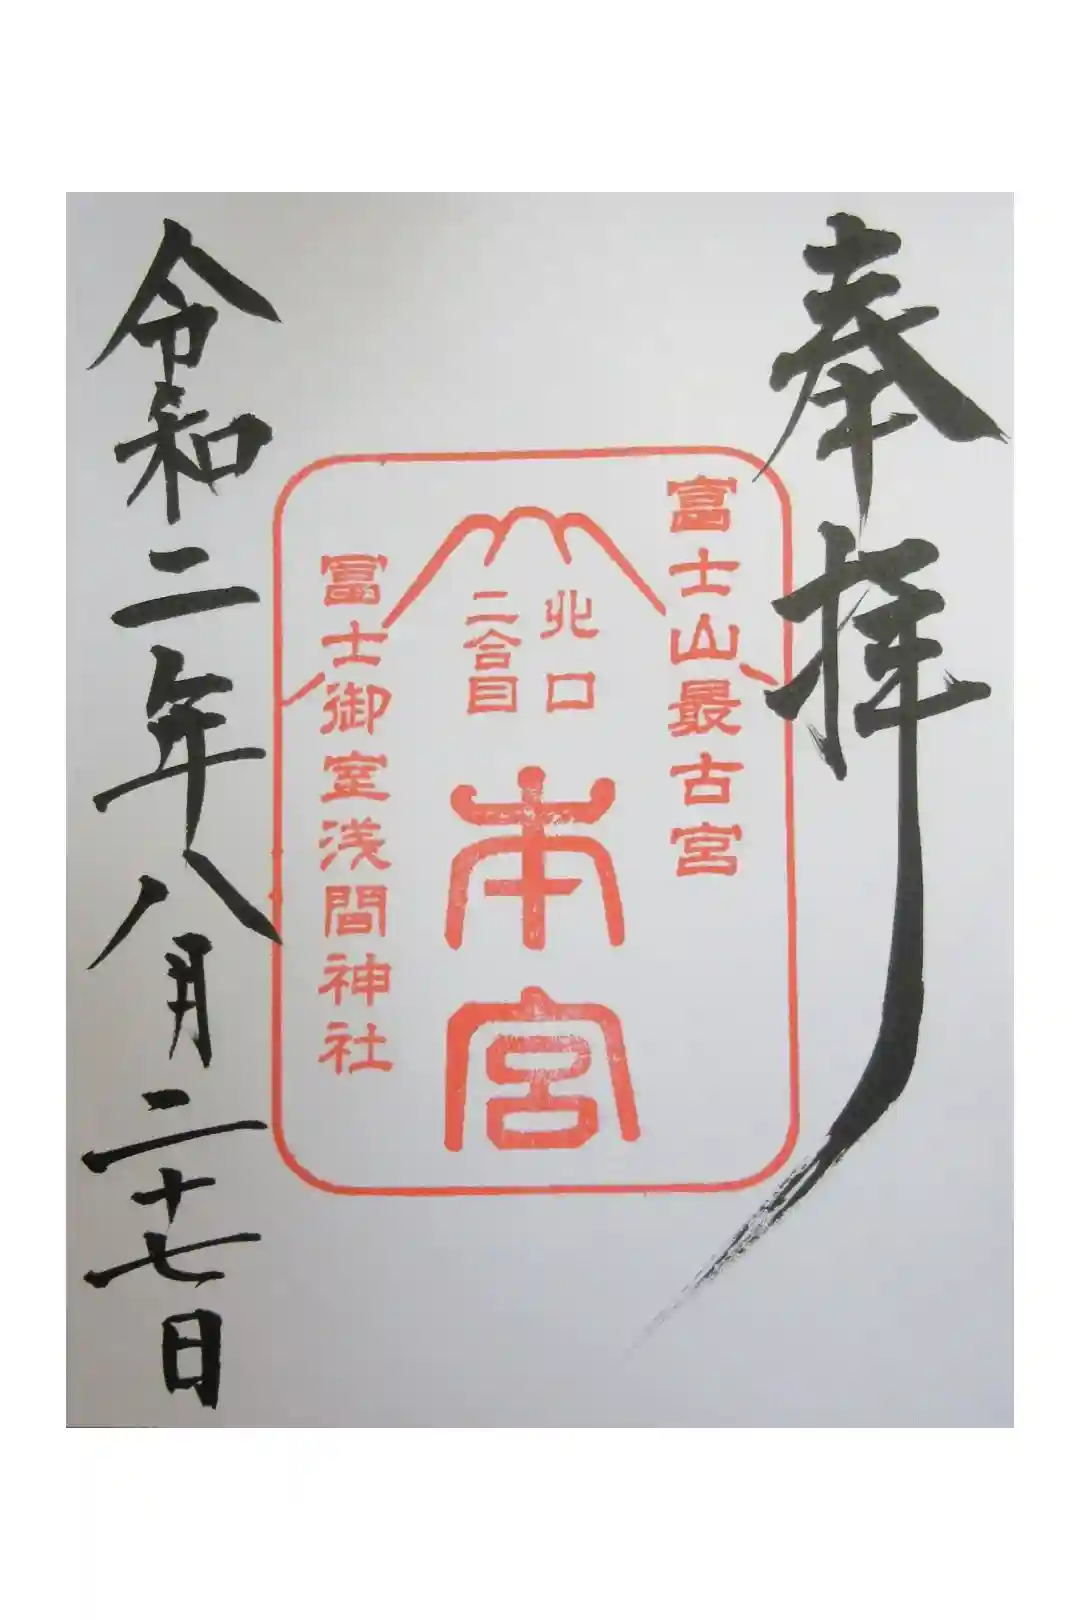 奉拝
富士山最古宮
北口
二合目
本宮
冨士御室浅間神社
令和二年八月二十七日